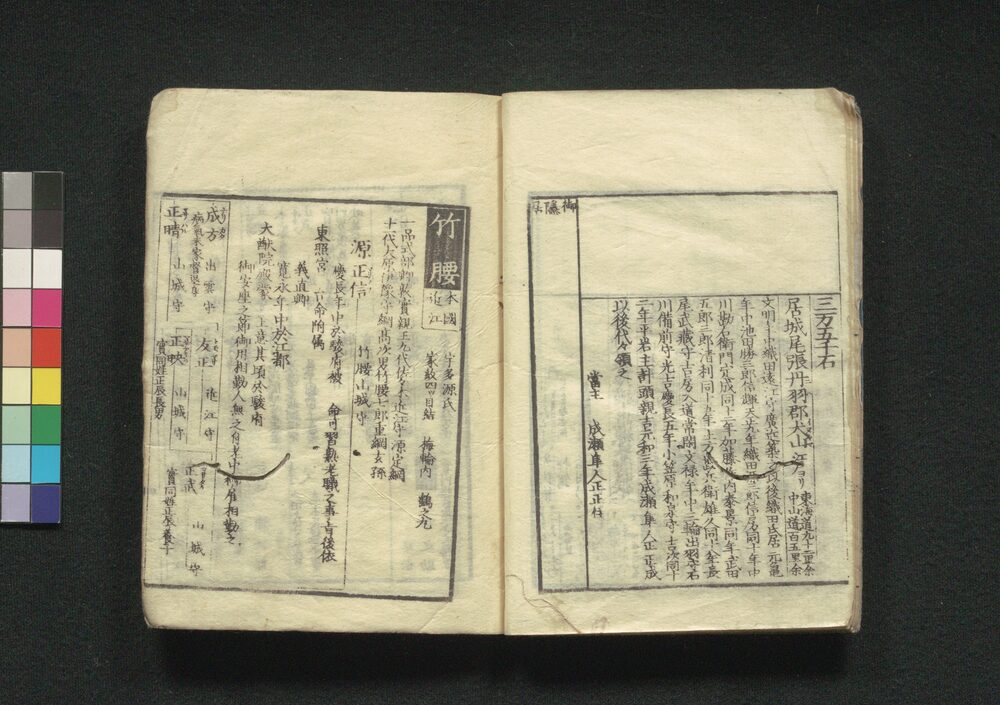 御隱居
三万五千石
居城尾張丹羽郡犬山 江戸ヨリ 東海道九十二里余 中山道百五里余
文明年中織田遠江守廣近築之其後織田氏居元亀
年中池田勝三郎信輝天正九年織田
信房同十年中
川勘右衛門定成同十二年加藤
泰景同年武田
五郎三郎清利同十五年土方
兵衛雄久同十八年長
尾武藏守吉房入道常閑文禄年中三輪出羽守石
川備前守光吉慶長五年小笠原和泉守吉次同十
二年平岩主計頭親吉元和三年成瀬隼人正正成
以後代々領之
當主 成瀬隼人正正住
竹腰
本國 近江
宇多源氏
家紋四ツ目結 梅輪内 鶴之丸
一品式部卿敦實親王九代佐々木近江守源定綱
十一代大原
高次男竹腰七郎重綱玄孫
源正信 竹腰山城守
慶長年中於駿府被 命可習熟老職之事旨後依
東照宮 台命附属
義直卿
寛永年中於江都
大猷院殿蒙 上意其頃於駿府
御安座之節御用相勤人無之付老中
相勤之
成方 出雲守
正晴 山城守
友正 近江守
正映 山城守
實同姓正辰長男
正武 山城守
實同姓正辰養子